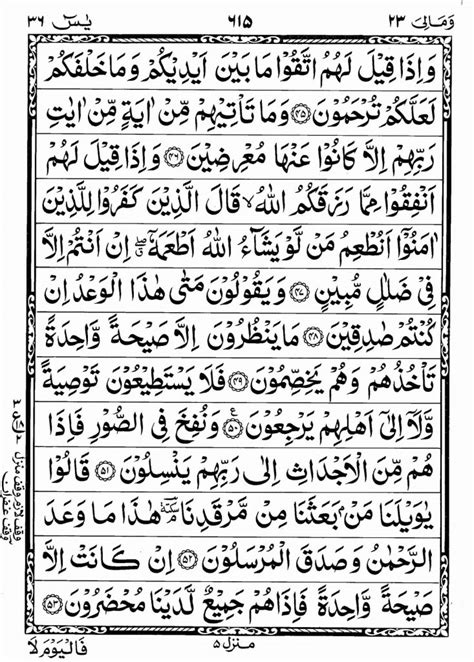 وَمَالِیَ ٢٣ ٦١٥ یٰسٓ ٣٦
وَاِذَا قِيْلَ لَهُمُ اتَّقُوْا مَا بَيْنَ اَيْدِيْكُمْ وَمَا خَلْفَكُمْ
لَعَلَّكُمْ تُرْحَمُوْنَ ﴿٤٥﴾ وَمَا تَاْتِيْهِمْ مِّنْ اٰيَةٍ مِّنْ اٰيٰتِ
رَبِّهِمْ اِلَّا كَانُوْا عَنْهَا مُعْرِضِيْنَ ﴿٤٦﴾ وَاِذَا قِيْلَ لَهُمْ
اَنْفِقُوْا مِمَّا رَزَقَكُمُ اللّٰهُ ۙ قَالَ الَّذِيْنَ كَفَرُوْا لِلَّذِيْنَ
اٰمَنُوْٓا اَنُطْعِمُ مَنْ لَّوْ يَشَآءُ اللّٰهُ اَطْعَمَهٗٓ ۖ اِنْ اَنْتُمْ اِلَّا
فِيْ ضَلٰلٍ مُّبِيْنٍ ﴿٤٧﴾ وَيَقُوْلُوْنَ مَتٰى هٰذَا الْوَعْدُ اِنْ
كُنْتُمْ صٰدِقِيْنَ ﴿٤٨﴾ مَا يَنْظُرُوْنَ اِلَّا صَيْحَةً وَّاحِدَةً
تَاْخُذُهُمْ وَهُمْ يَخِصِّمُوْنَ ﴿٤٩﴾ فَلَا يَسْتَطِيْعُوْنَ تَوْصِيَةً
وَّلَآ اِلٰٓى اَهْلِهِمْ يَرْجِعُوْنَ ﴿٥٠﴾ ع وَنُفِخَ فِي الصُّوْرِ فَاِذَا
هُمْ مِّنَ الْاَجْدَاثِ اِلٰى رَبِّهِمْ يَنْسِلُوْنَ ﴿٥١﴾ قَالُوْا
يٰوَيْلَنَا مَنْۢ بَعَثَنَا مِنْ مَّرْقَدِنَا ۜ هٰذَا مَا وَعَدَ
الرَّحْمٰنُ وَصَدَقَ الْمُرْسَلُوْنَ ﴿٥٢﴾ اِنْ كَانَتْ اِلَّا
صَيْحَةً وَّاحِدَةً فَاِذَا هُمْ جَمِيْعٌ لَّدَيْنَا مُحْضَرُوْنَ ﴿٥٣﴾
وقف لازم وقف منزل
وقف غفران
منزل ٥
فَالْيَوْمَ لَا